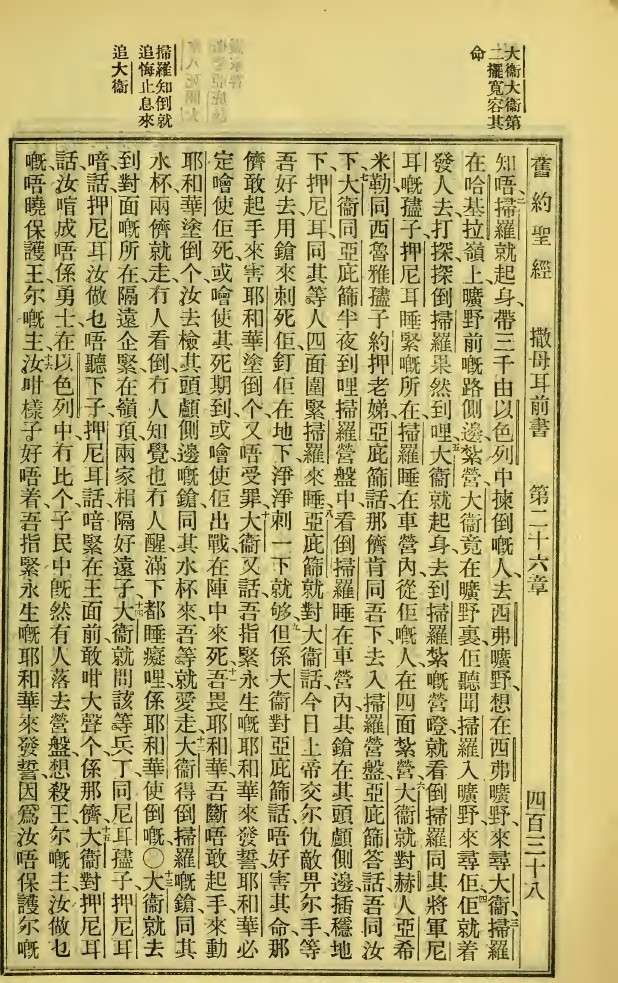 大衞大衞第
二擺寬容其
命
掃羅知倒就
追悔止息來
追大衞
舊約聖經 撒母耳前書 第二十六章 四百三十八
知唔掃羅就起身、帶三千由以色列中揀倒嘅人、去西弗曠野、想在西弗曠野、來尋大衞、三掃羅
在哈基拉嶺上、曠野前嘅路側邊紮營、大衞竟在曠野裏、佢聽聞掃羅入曠野、來尋佢、四佢就着
發人去打探、探倒掃羅果然到哩、五大衞就起身、去到掃羅紮嘅營嶝、就看倒掃羅同其將軍尼
耳嘅孻子押尼耳睡緊嘅所在、掃羅睡在車營內、從佢嘅人在四面紮營、六大衞就對赫人亞希
米勒、同西魯雅孻子約押老娣亞庇篩話、那儕肯同吾下去入掃羅營盤、亞庇篩答話、吾同汝
下、七大衞同亞庇篩半夜到哩掃羅營盤中、看倒掃羅睡在車營內、其鎗在其頭顱側邊插穩地
下、押尼耳同其等人四面圍緊掃羅來睡、八亞庇篩就對大衞話、今日上帝交尔仇敵畀尔手、等
吾好去用鎗來刺死佢、釘佢在地下、淨淨刺一下就够、九但係大衞對亞庇篩話、唔好害其命、那
儕敢起手來害耶和華塗倒个、又唔受罪、十大衞又話、吾指緊永生嘅耶和華來發誓、耶和華必
定噲使佢死、或噲使其死期到、或噲使佢出戰在陣中來死、十一吾畏耶和華、吾斷唔敢起手來動
耶和華塗倒个、汝去檢其頭顱側邊嘅鎗、同其水杯來、吾等就愛走、十二大衞得倒掃羅嘅鎗、同其
水杯、兩儕就走、冇人看倒、冇人知覺、也冇人醒、滿下都睡癡哩、係耶和華使倒嘅〇十三大衞就去
到對面嘅所在、隔遠企緊在嶺頂、兩家相隔好遠子、十四大衞就問該等兵丁、同尼耳孻子押尼耳
喑話、押尼耳、汝做乜唔聽下子、押尼耳話、喑緊在王面前敢咁大聲个、係那儕、十五大衞對押尼耳
話、汝喧成唔係勇士、在以色列中有比个子民中、旣然有人落去營盤、想殺王尔嘅主、汝做乜
嘅唔曉保護王尔嘅主、十六汝咁樣子好唔着、吾指緊永生嘅耶和華來發誓、因爲汝唔保護尔嘅